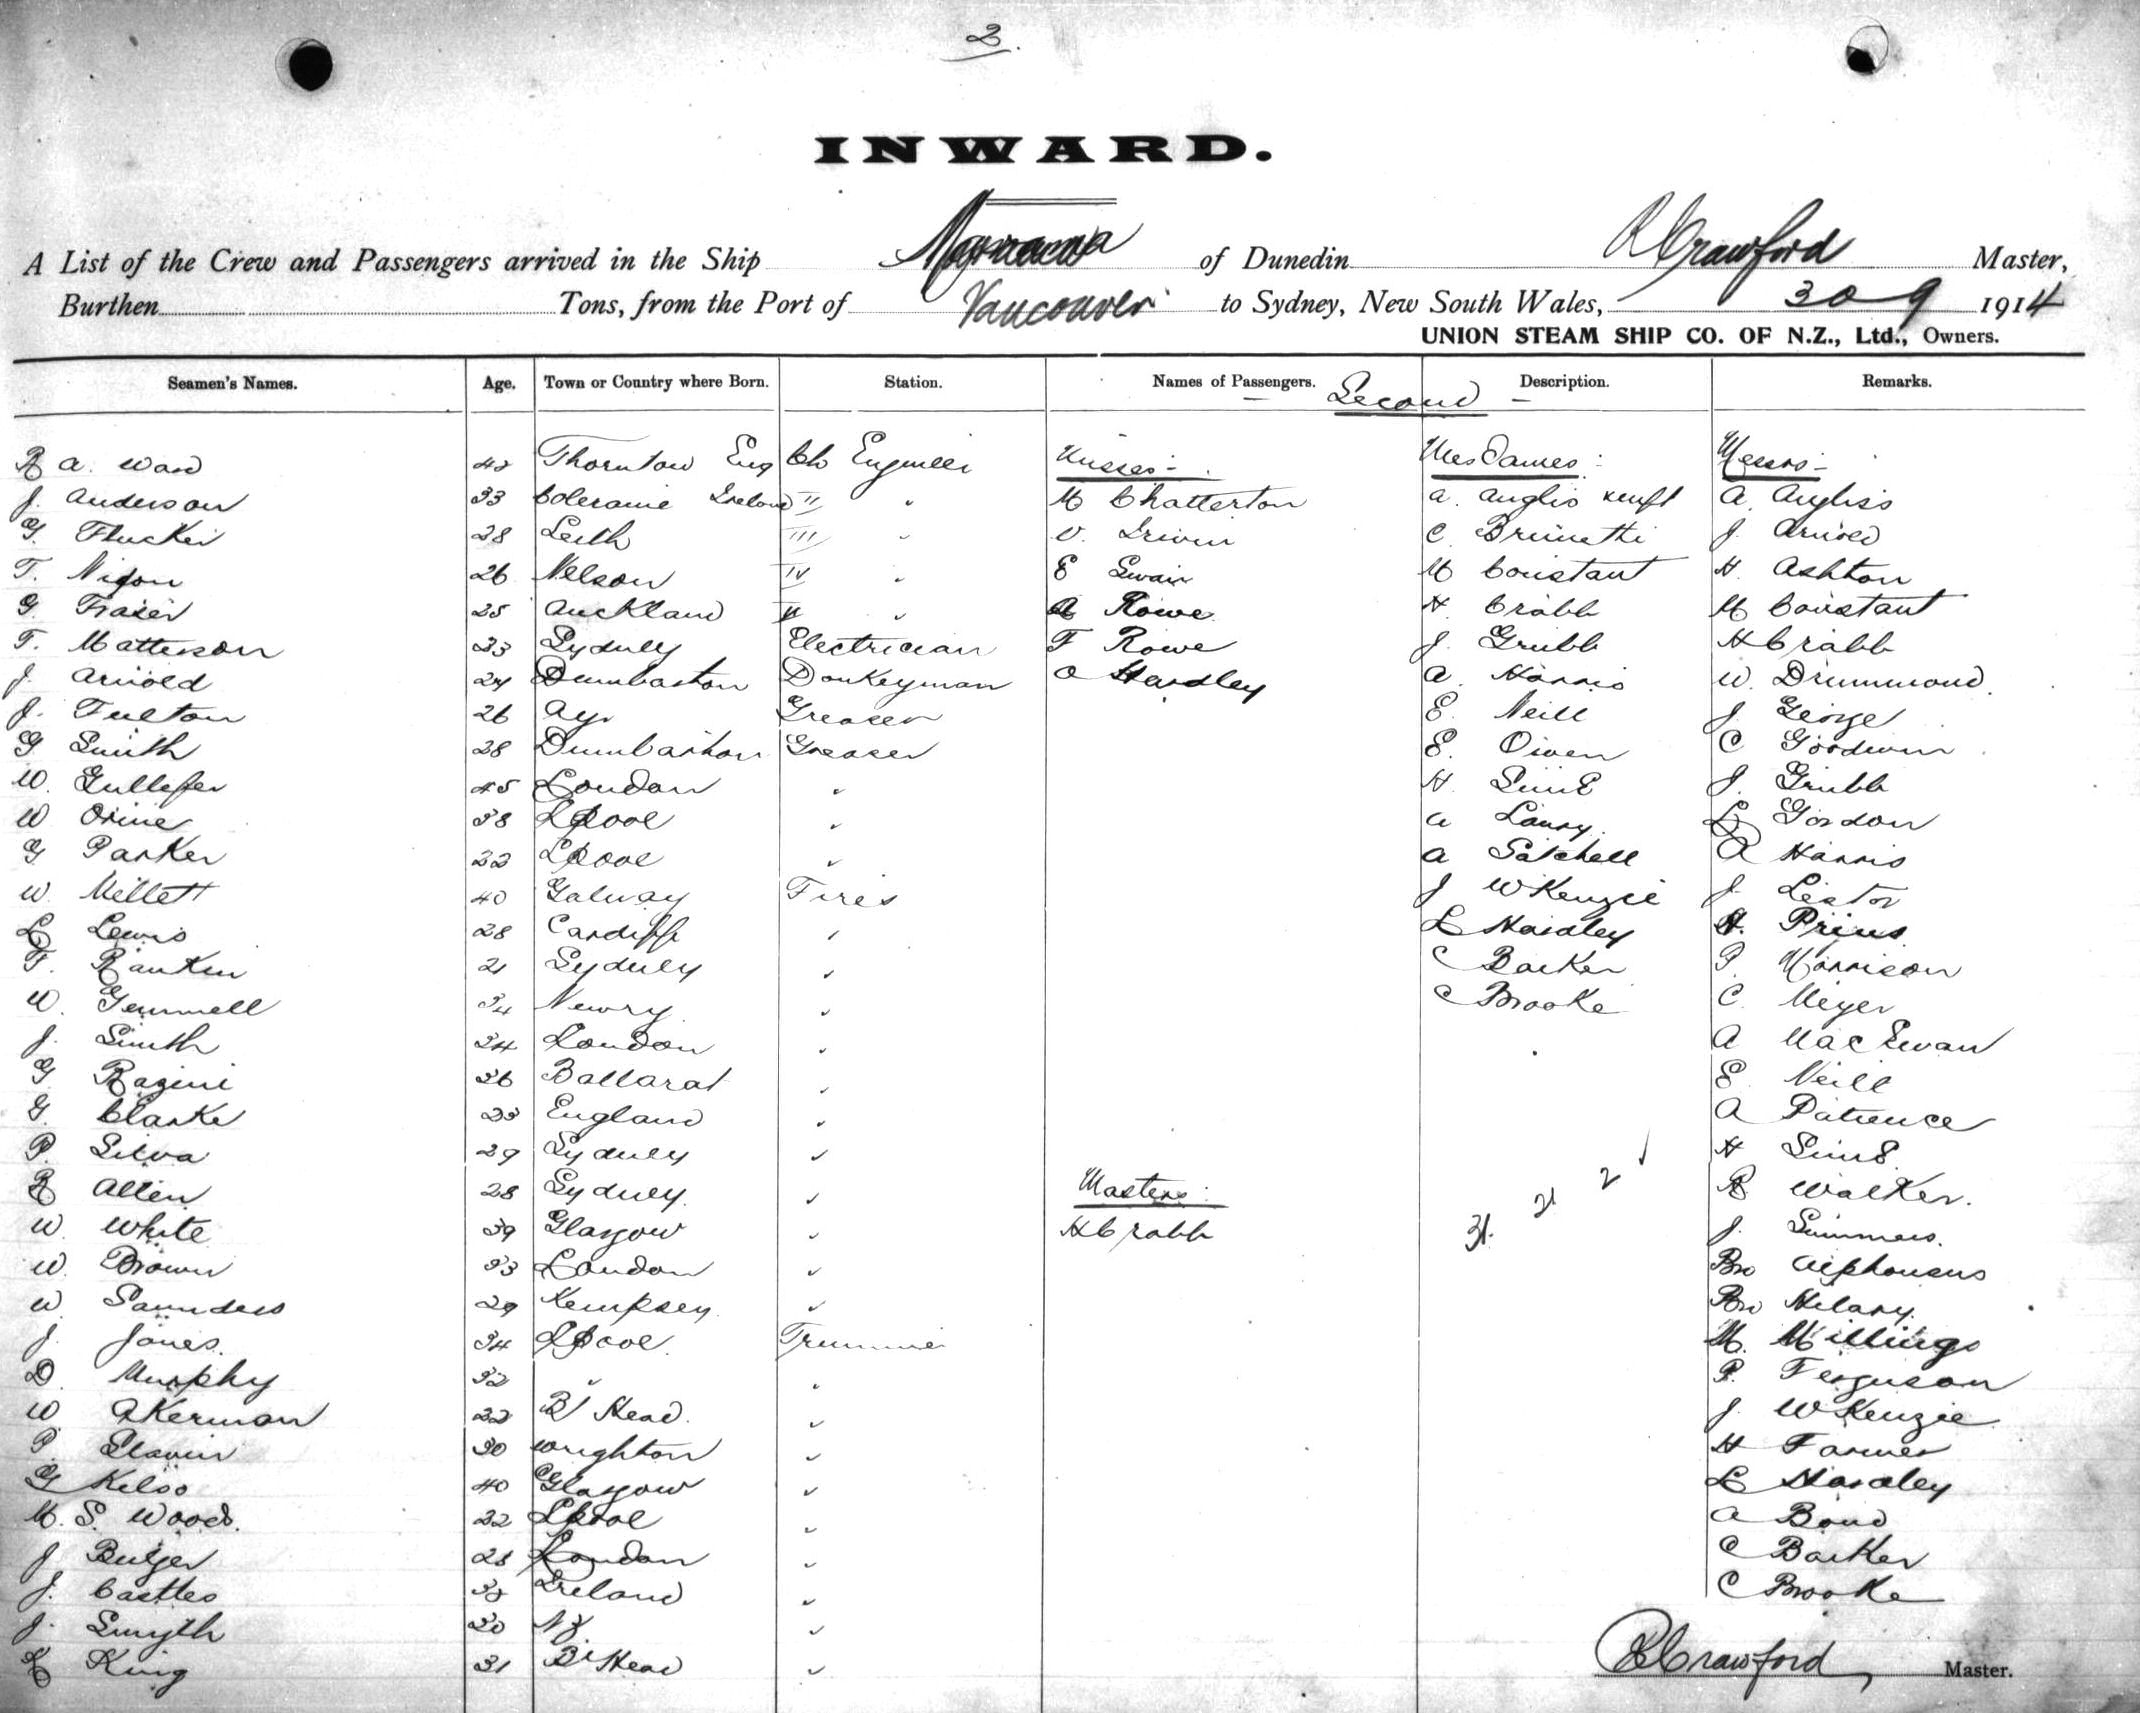 2.
INWARD.
A List of the Crew and Passengers arrived in the Ship Marama of Dunedin R Crawford Master,
Burthen Tons, from the Port of Vancouver to Sydney, New South Wales, 30 9 1914
UNION STEAM SHIP CO. OF N.Z., Ltd., Owners.
Seamen's Names. Age. Town or Country where Born. Station. Names of Passengers. Description. Remarks.
Second
R A. Ward 42 Thornton Eng Ch Engineer Misses Mesdames Messrs
J. Anderson 33 Coleraine Ireland II " M Chatterton A. Angliss A. Angliss
G. Flucker 28 Leith III " V. Irwin C. J. Arnold
T. Nixon 26 Nelson IV " E Swain M Constant H. Ashton
G Fraser 25 Auckland V " A Rowe H. Crabb M Constant
T. Matterson 33 Sydney Electrician F Rowe J. Grubb H Crabb
J. Arnold 24 Dumbarton Donkeyman O Hardley A. Harris W. Drummond
J. Fulton 26 Ayr Greaser E. Neill J. George
G Smith 28 Dumbarton Greaser E. Owen C Goodwin
W. Gullefer 45 London " H. J. Grubb
W Orme 38 L'pool " A L Gordon
G Parker 22 L'pool " A Satchell R Harris
W Millett 40 Galway Fires J McKenzie J. Lester
L Lewis 28 Cardiff " L Hardley H.
F. Rankin 21 Sydney " C Barker P. Morrison
W. Gemmell 34 Newry " C Brooke C. Meyer
J. Smith 24 London " A MacEwan
G 36 Ballarat " E. Neill
G. Clarke 23 England " A Patience
P. Silva 29 Sydney " H
R Allen 28 Sydney " Masters R Walker.
W. White 39 Glasgow " H Crabb 31. 2 2 J. Simmers.
W. Brown 33 London " Bro Alphonsus
W Saunders 29 Kempsey " Bro Hilary
J. Jones 34 L'pool Trimmer M. Millings
D. Murphy 32 " " P. Ferguson
W Akerman 22 B'Head " J. McKenzie
P. Slavin 30 " H Farmer
G Kelso 40 Glasgow " L Hardley
M. S. Woods 22 L'pool " A Bond
J Bulger 28 London " C Barker
J. Castles 38 Ireland " C Brooke
J. Smyth 20 NZ "
King 31 B'Head "
R Crawford Master.